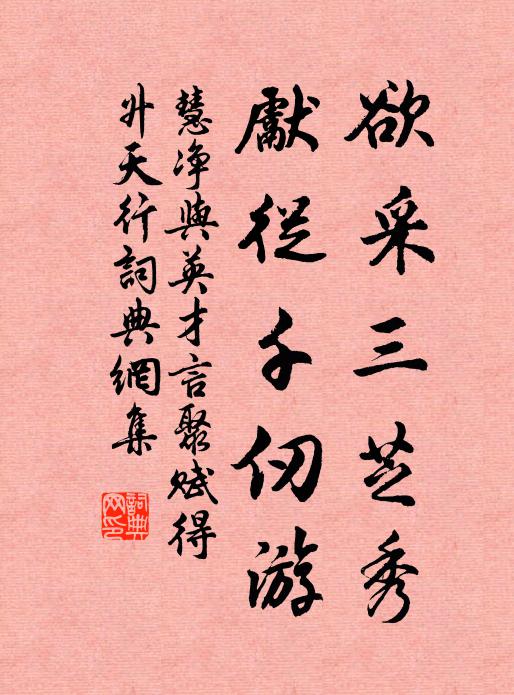 欲采三芝秀
獻從千仞游
慧净與英才言聚賦得
升天行詞典網集
詞典
网印